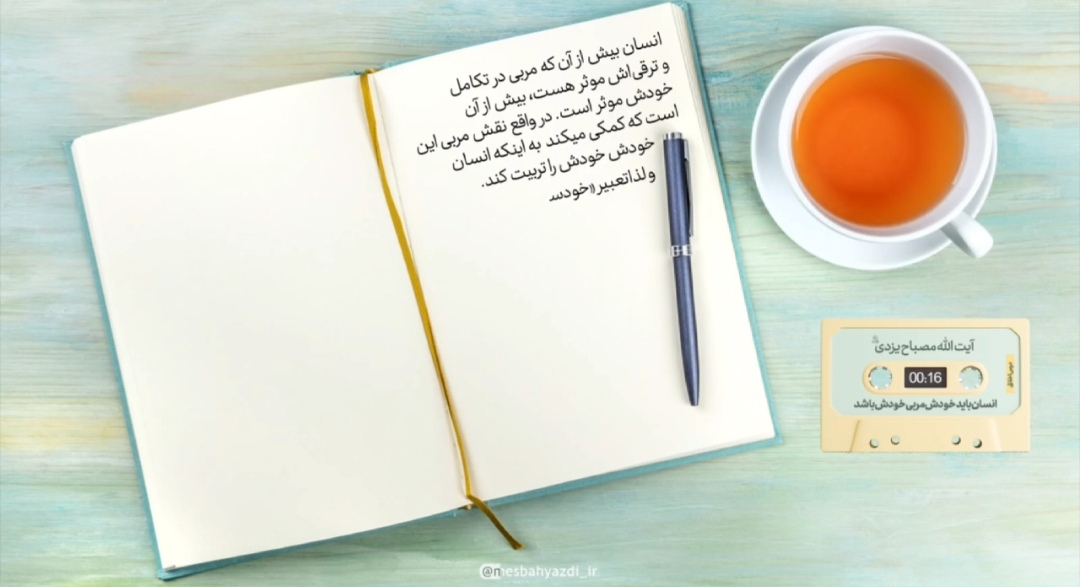 انسان بیش از آن که مربی در تکامل
و ترقی‌اش موثر هست، بیش از آن
خودش موثر است. در واقع نقش مربی این
است که کمکی میکند به اینکه انسان
خودش خودش را تربیت کند.
ولذا تعبیر «خودس
آیت الله مصباح یزدی
00:16
انسان باید خودش مربی خودش باشد
@mesbahyazdi_ir